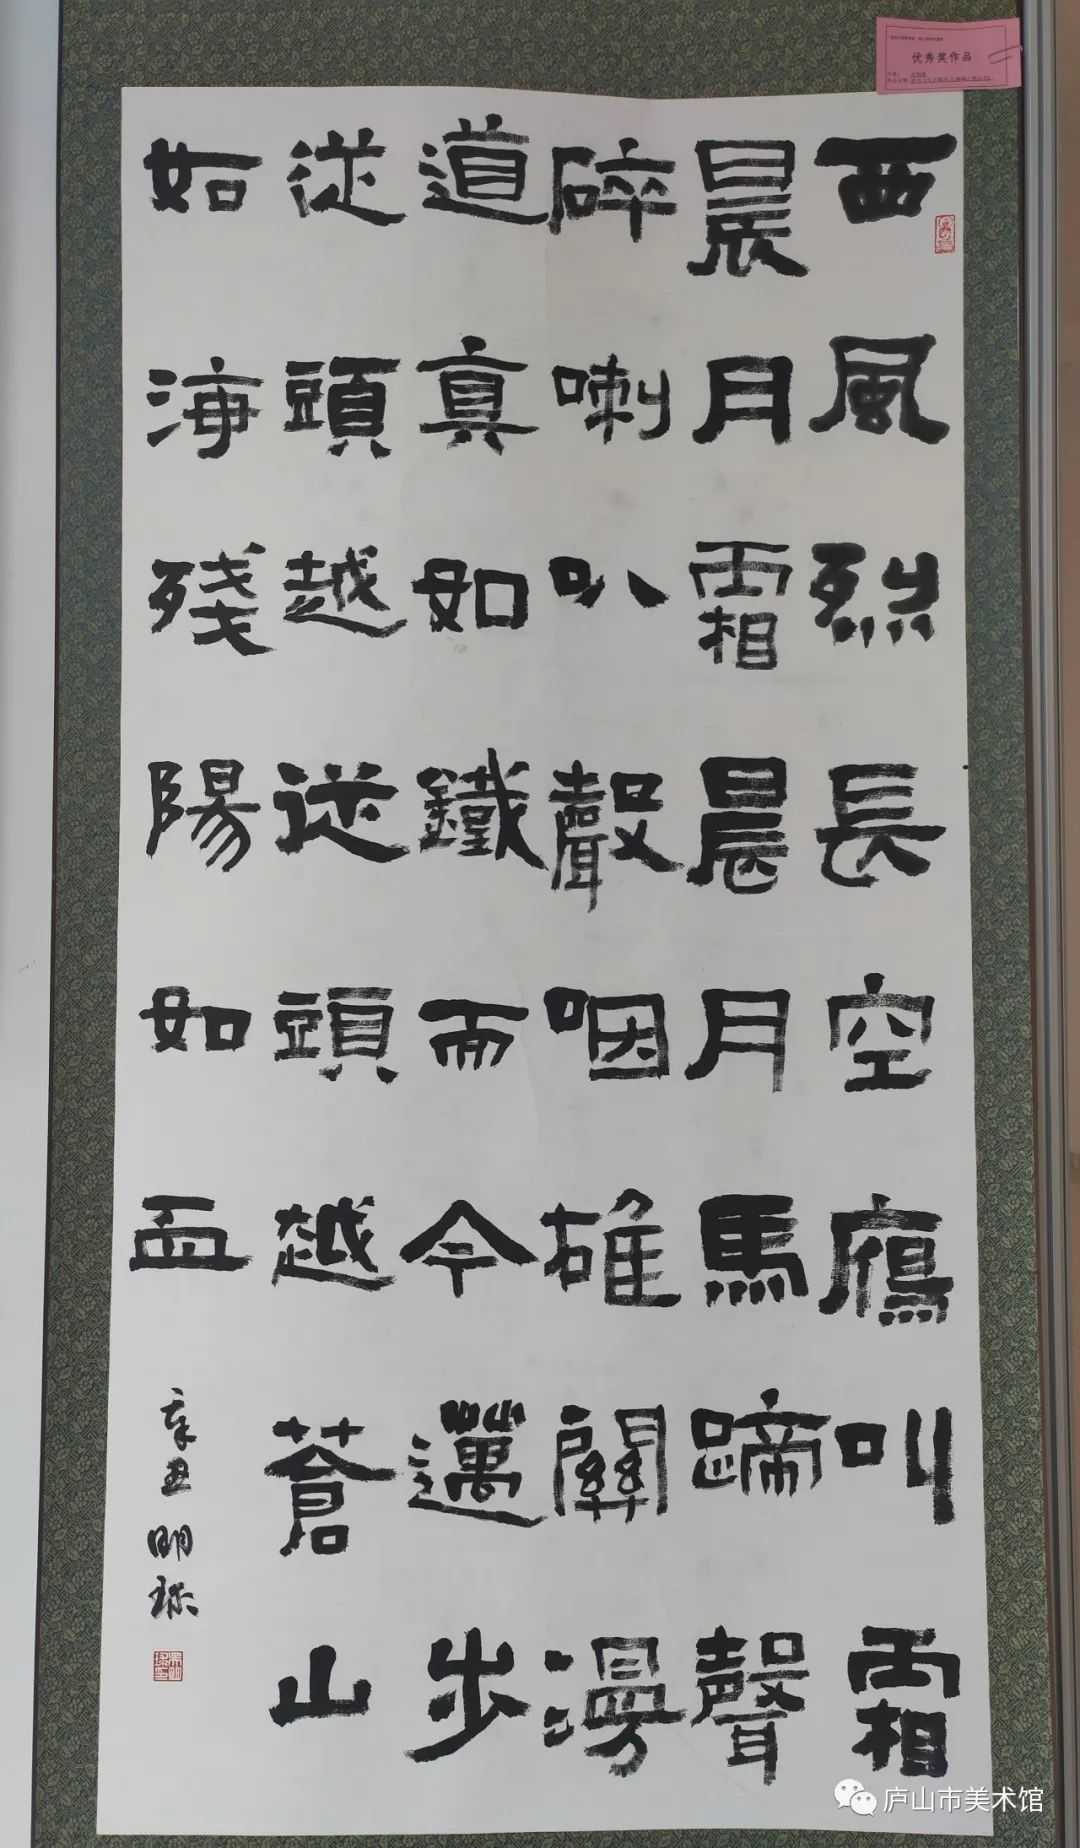 优秀奖作品
西風烈長空鴈叫霜
晨月霜晨月馬蹄聲
碎喇叭聲咽雄關漫
道真如鐵而今邁步
從頭越從頭越蒼山
如海殘陽如血
辛丑明
庐山市美术馆